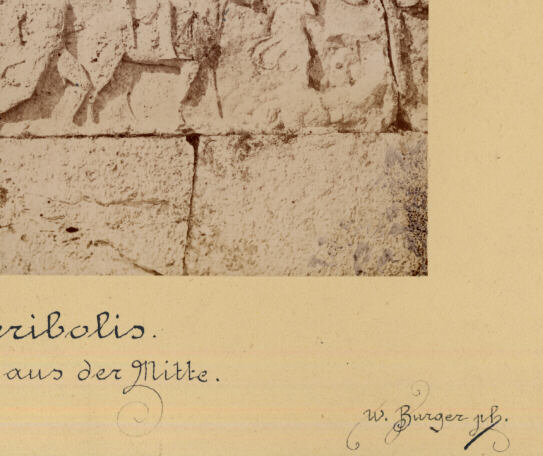 eribolis.
aus der Mitte.
W. Burger ph.